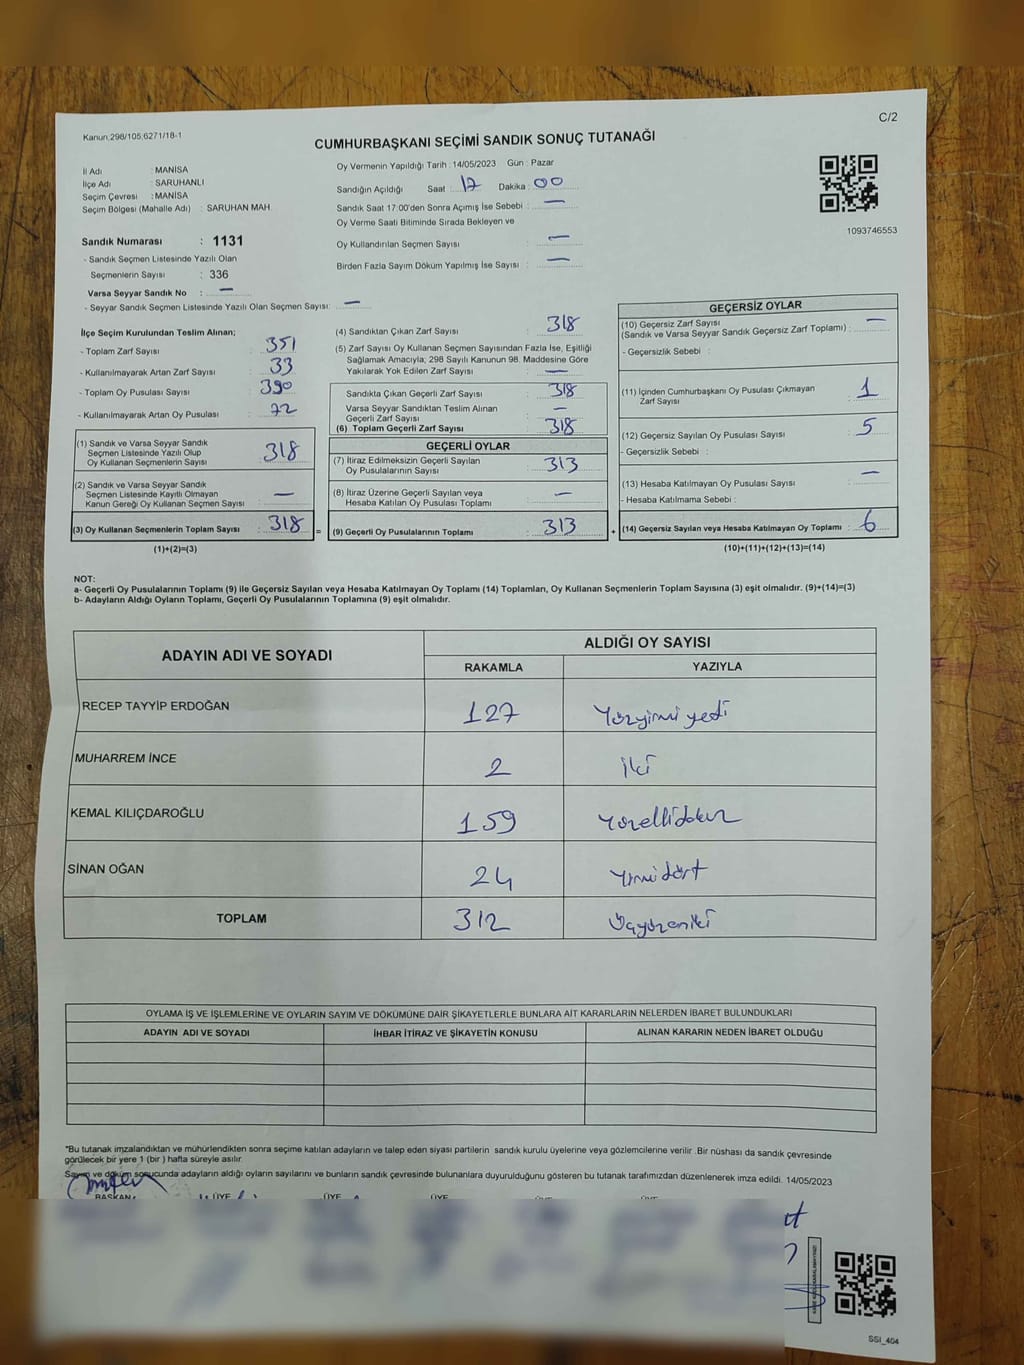 C/2
Kanun:298/105,6271/18-1
CUMHURBAŞKANI SEÇİMİ SANDIK SONUÇ TUTANAĞI
İl Adı : MANİSA
İlçe Adı : SARUHANLI
Seçim Çevresi : MANİSA
Seçim Bölgesi (Mahalle Adı) : SARUHAN MAH.
Sandık Numarası : 1131
- Sandık Seçmen Listesinde Yazılı Olan
Seçmenlerin Sayısı : 336
Varsa Seyyar Sandık No : —
- Seyyar Sandık Seçmen Listesinde Yazılı Olan Seçmen Sayısı: —
Oy Vermenin Yapıldığı Tarih : 14/05/2023 Gün : Pazar
Sandığın Açıldığı Saat : 17 Dakika : 00
Sandık Saat 17:00'den Sonra Açımış İse Sebebi : —
Oy Verme Saati Bitiminde Sırada Bekleyen ve
Oy Kullandırılan Seçmen Sayısı : —
Birden Fazla Sayım Döküm Yapılmış İse Sayısı : —
1093746553
İlçe Seçim Kurulundan Teslim Alınan;
- Toplam Zarf Sayısı : 351
- Kullanılmayarak Artan Zarf Sayısı : 33
- Toplam Oy Pusulası Sayısı : 390
- Kullanılmayarak Artan Oy Pusulası : 72
(1) Sandık ve Varsa Seyyar Sandık
Seçmen Listesinde Yazılı Olup
Oy Kullanan Seçmenlerin Sayısı : 318
(2) Sandık ve Varsa Seyyar Sandık
Seçmen Listesinde Kayıtlı Olmayan
Kanun Gereği Oy Kullanan Seçmen Sayısı : —
(3) Oy Kullanan Seçmenlerin Toplam Sayısı : 318 =
(1)+(2)=(3)
(4) Sandıktan Çıkan Zarf Sayısı : 318
(5) Zarf Sayısı Oy Kullanan Seçmen Sayısından Fazla İse, Eşitliği
Sağlamak Amacıyla; 298 Sayılı Kanunun 98. Maddesine Göre
Yakılarak Yok Edilen Zarf Sayısı : —
Sandıkta Çıkan Geçerli Zarf Sayısı : 318
Varsa Seyyar Sandıktan Teslim Alınan
Geçerli Zarf Sayısı : —
(6) Toplam Geçerli Zarf Sayısı : 318
GEÇERLİ OYLAR
(7) İtiraz Edilmeksizin Geçerli Sayılan
Oy Pusulalarının Sayısı : 313
(8) İtiraz Üzerine Geçerli Sayılan veya
Hesaba Katılan Oy Pusulası Toplamı : —
(9) Geçerli Oy Pusulalarının Toplamı : 313 +
GEÇERSİZ OYLAR
(10) Geçersiz Zarf Sayısı
(Sandık ve Varsa Seyyar Sandık Geçersiz Zarf Toplamı) : —
- Geçersizlik Sebebi :
(11) İçinden Cumhurbaşkanı Oy Pusulası Çıkmayan
Zarf Sayısı : 1
(12) Geçersiz Sayılan Oy Pusulası Sayısı : 5
- Geçersizlik Sebebi :
(13) Hesaba Katılmayan Oy Pusulası Sayısı : —
- Hesaba Katılmama Sebebi :
(14) Geçersiz Sayılan veya Hesaba Katılmayan Oy Toplamı : 6
(10)+(11)+(12)+(13)=(14)
NOT:
a- Geçerli Oy Pusulalarının Toplamı (9) ile Geçersiz Sayılan veya Hesaba Katılmayan Oy Toplamı (14) Toplamları, Oy Kullanan Seçmenlerin Toplam Sayısına (3) eşit olmalıdır. (9)+(14)=(3)
b- Adayların Aldığı Oyların Toplamı, Geçerli Oy Pusulalarının Toplamına (9) eşit olmalıdır.
ADAYIN ADI VE SOYADI ALDIĞI OY SAYISI
RAKAMLA YAZIYLA
RECEP TAYYİP ERDOĞAN 127 Yüzyirmi yedi
MUHARREM İNCE 2 iki
KEMAL KILIÇDAROĞLU 159 Yüzellidokuz
SİNAN OĞAN 24 Yirmidört
TOPLAM 312 Üçyüzoniki
OYLAMA İŞ VE İŞLEMLERİNE VE OYLARIN SAYIM VE DÖKÜMÜNE DAİR ŞİKAYETLERLE BUNLARA AİT KARARLARIN NELERDEN İBARET BULUNDUKLARI
ADAYIN ADI VE SOYADI İHBAR İTİRAZ VE ŞİKAYETİN KONUSU ALINAN KARARIN NEDEN İBARET OLDUĞU
*Bu tutanak imzalandıktan ve mühürlendikten sonra seçime katılan adayların ve talep eden siyasi partilerin sandık kurulu üyelerine veya gözlemcilerine verilir. Bir nüshası da sandık çevresinde
görülecek bir yere 1 (bir ) hafta süreyle asılır.
Sayım ve döküm sonucunda adayların aldığı oyların sayılarını ve bunların sandık çevresinde bulunanlara duyurulduğunu gösteren bu tutanak tarafımızdan düzenlenerek imza edildi. 14/05/2023
BAŞKAN ÜYE ÜYE ÜYE ÜYE
SSI_404